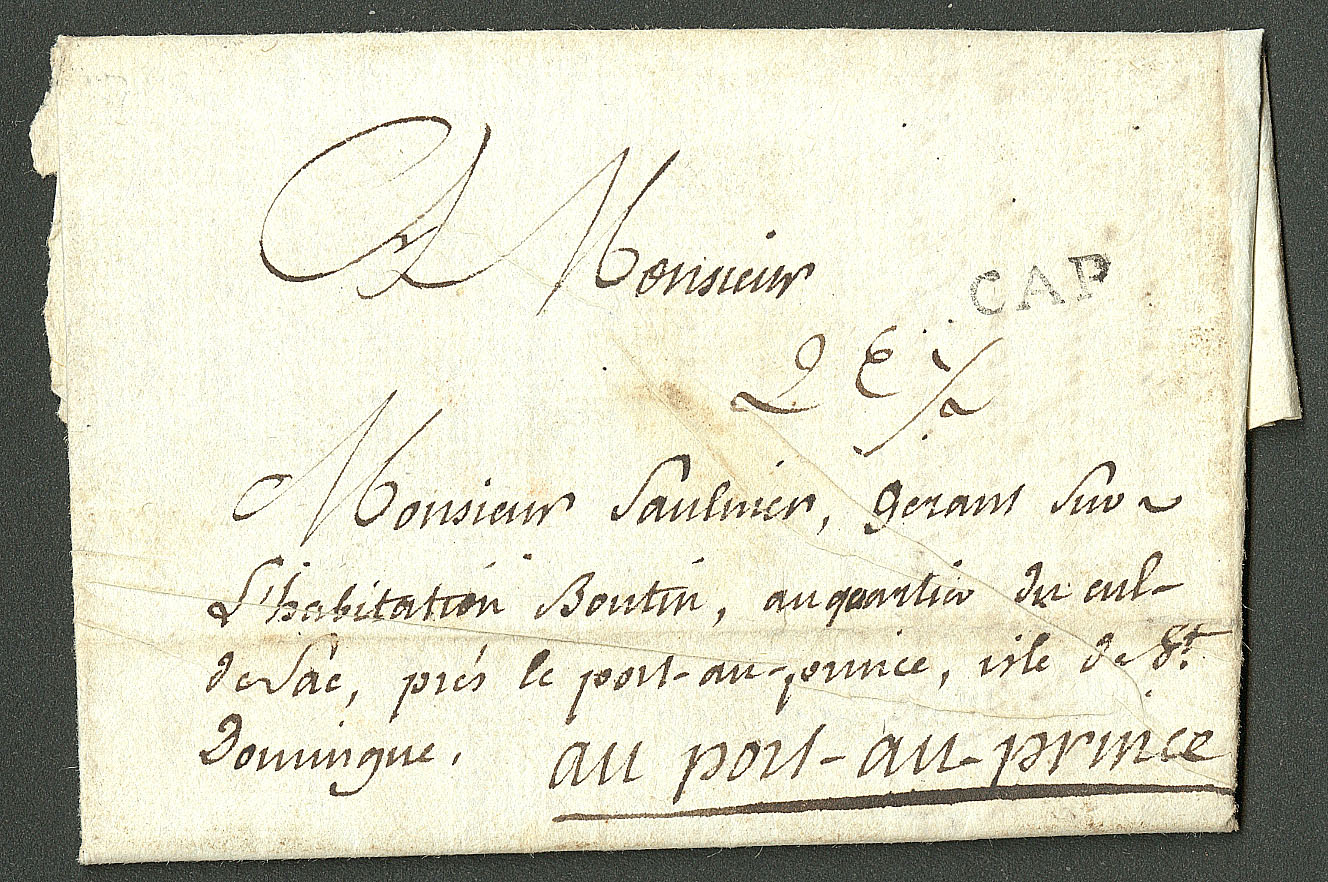 A Monsieur
CAP
2 E 1/2
Monsieur Saulnier, gerant sur
L'habitation Boutin, au quartier du cul-
de sac, prés le port-au-prince, isle de St.
Domingue.
au port-au-prince